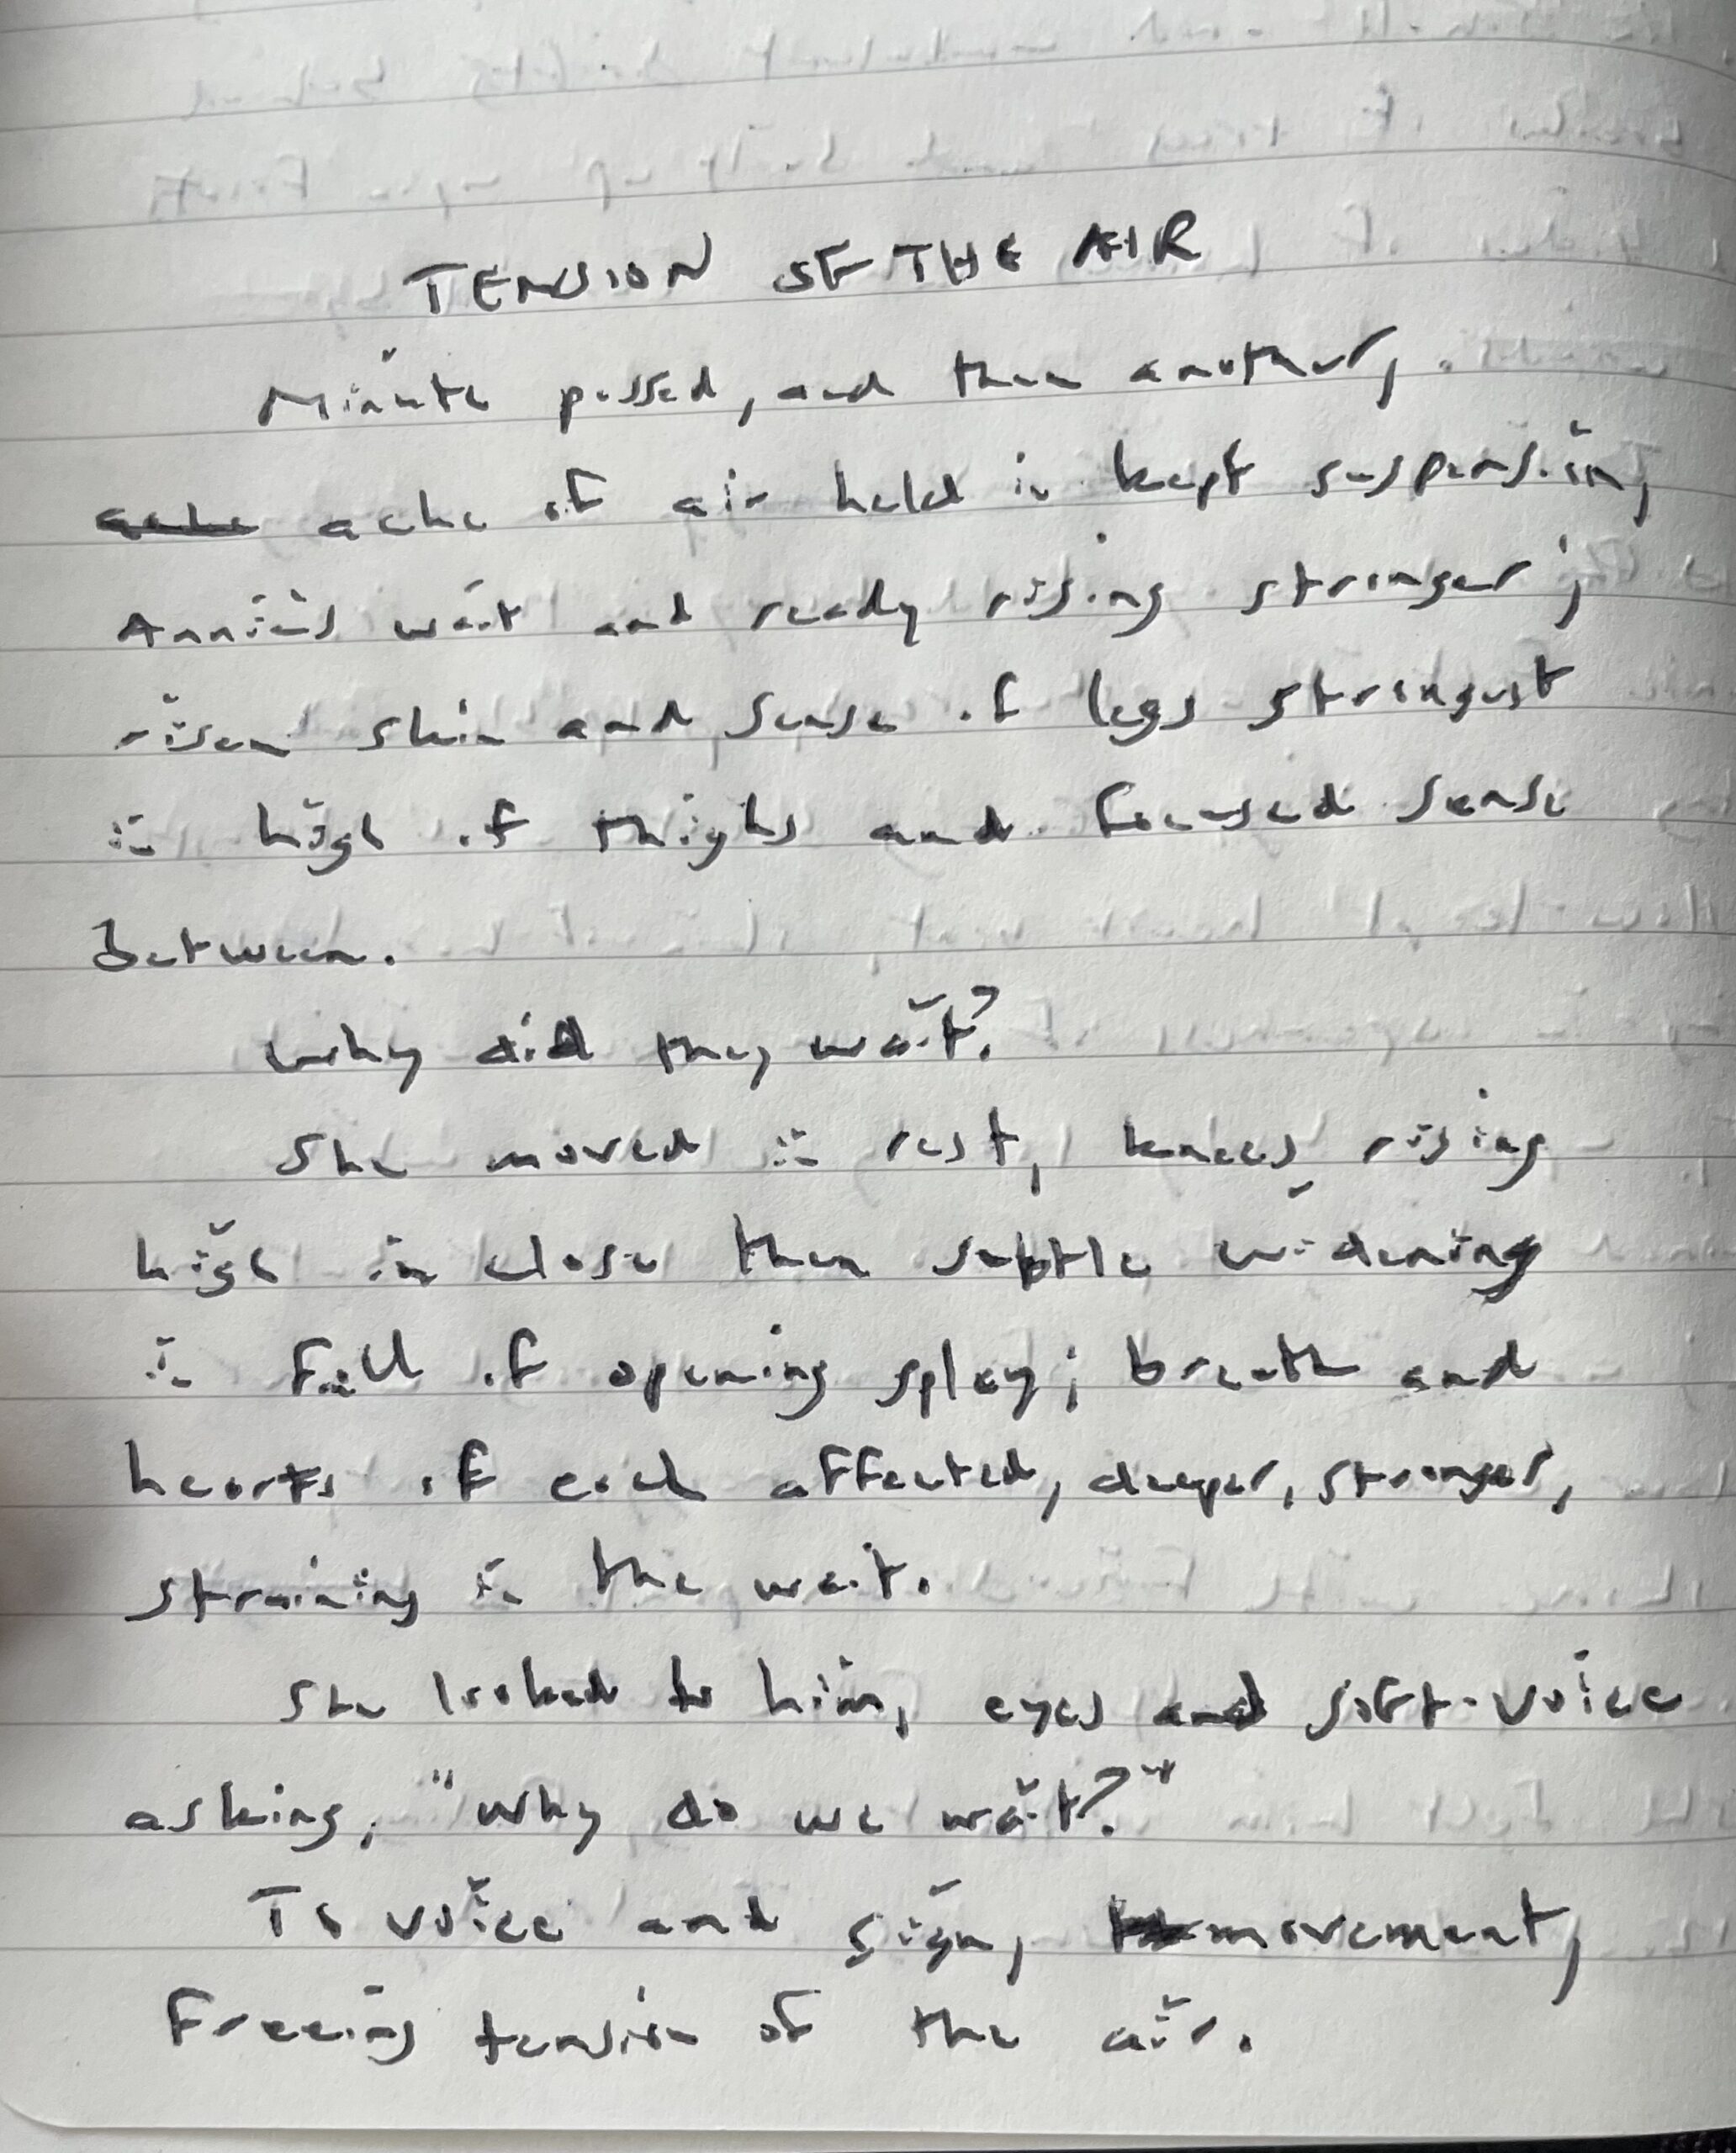 TENSION OF THE AIR
Minute passed, and then another,
ache ache of air held in kept suspension,
Annie's wait and ready rising stronger;
risen skin and sense of legs strongest
in high of thighs and focused sense
between.
Why did they wait?
She moved in rest, knees rising
high in close then subtle widening
in fall of opening splay; breath and
hearts of each affected, deeper, stronger,
straining in the wait.
She looked to him, eyes and soft-voice
asking, "Why do we wait?"
To voice and sign, movement,
freeing tension of the air.